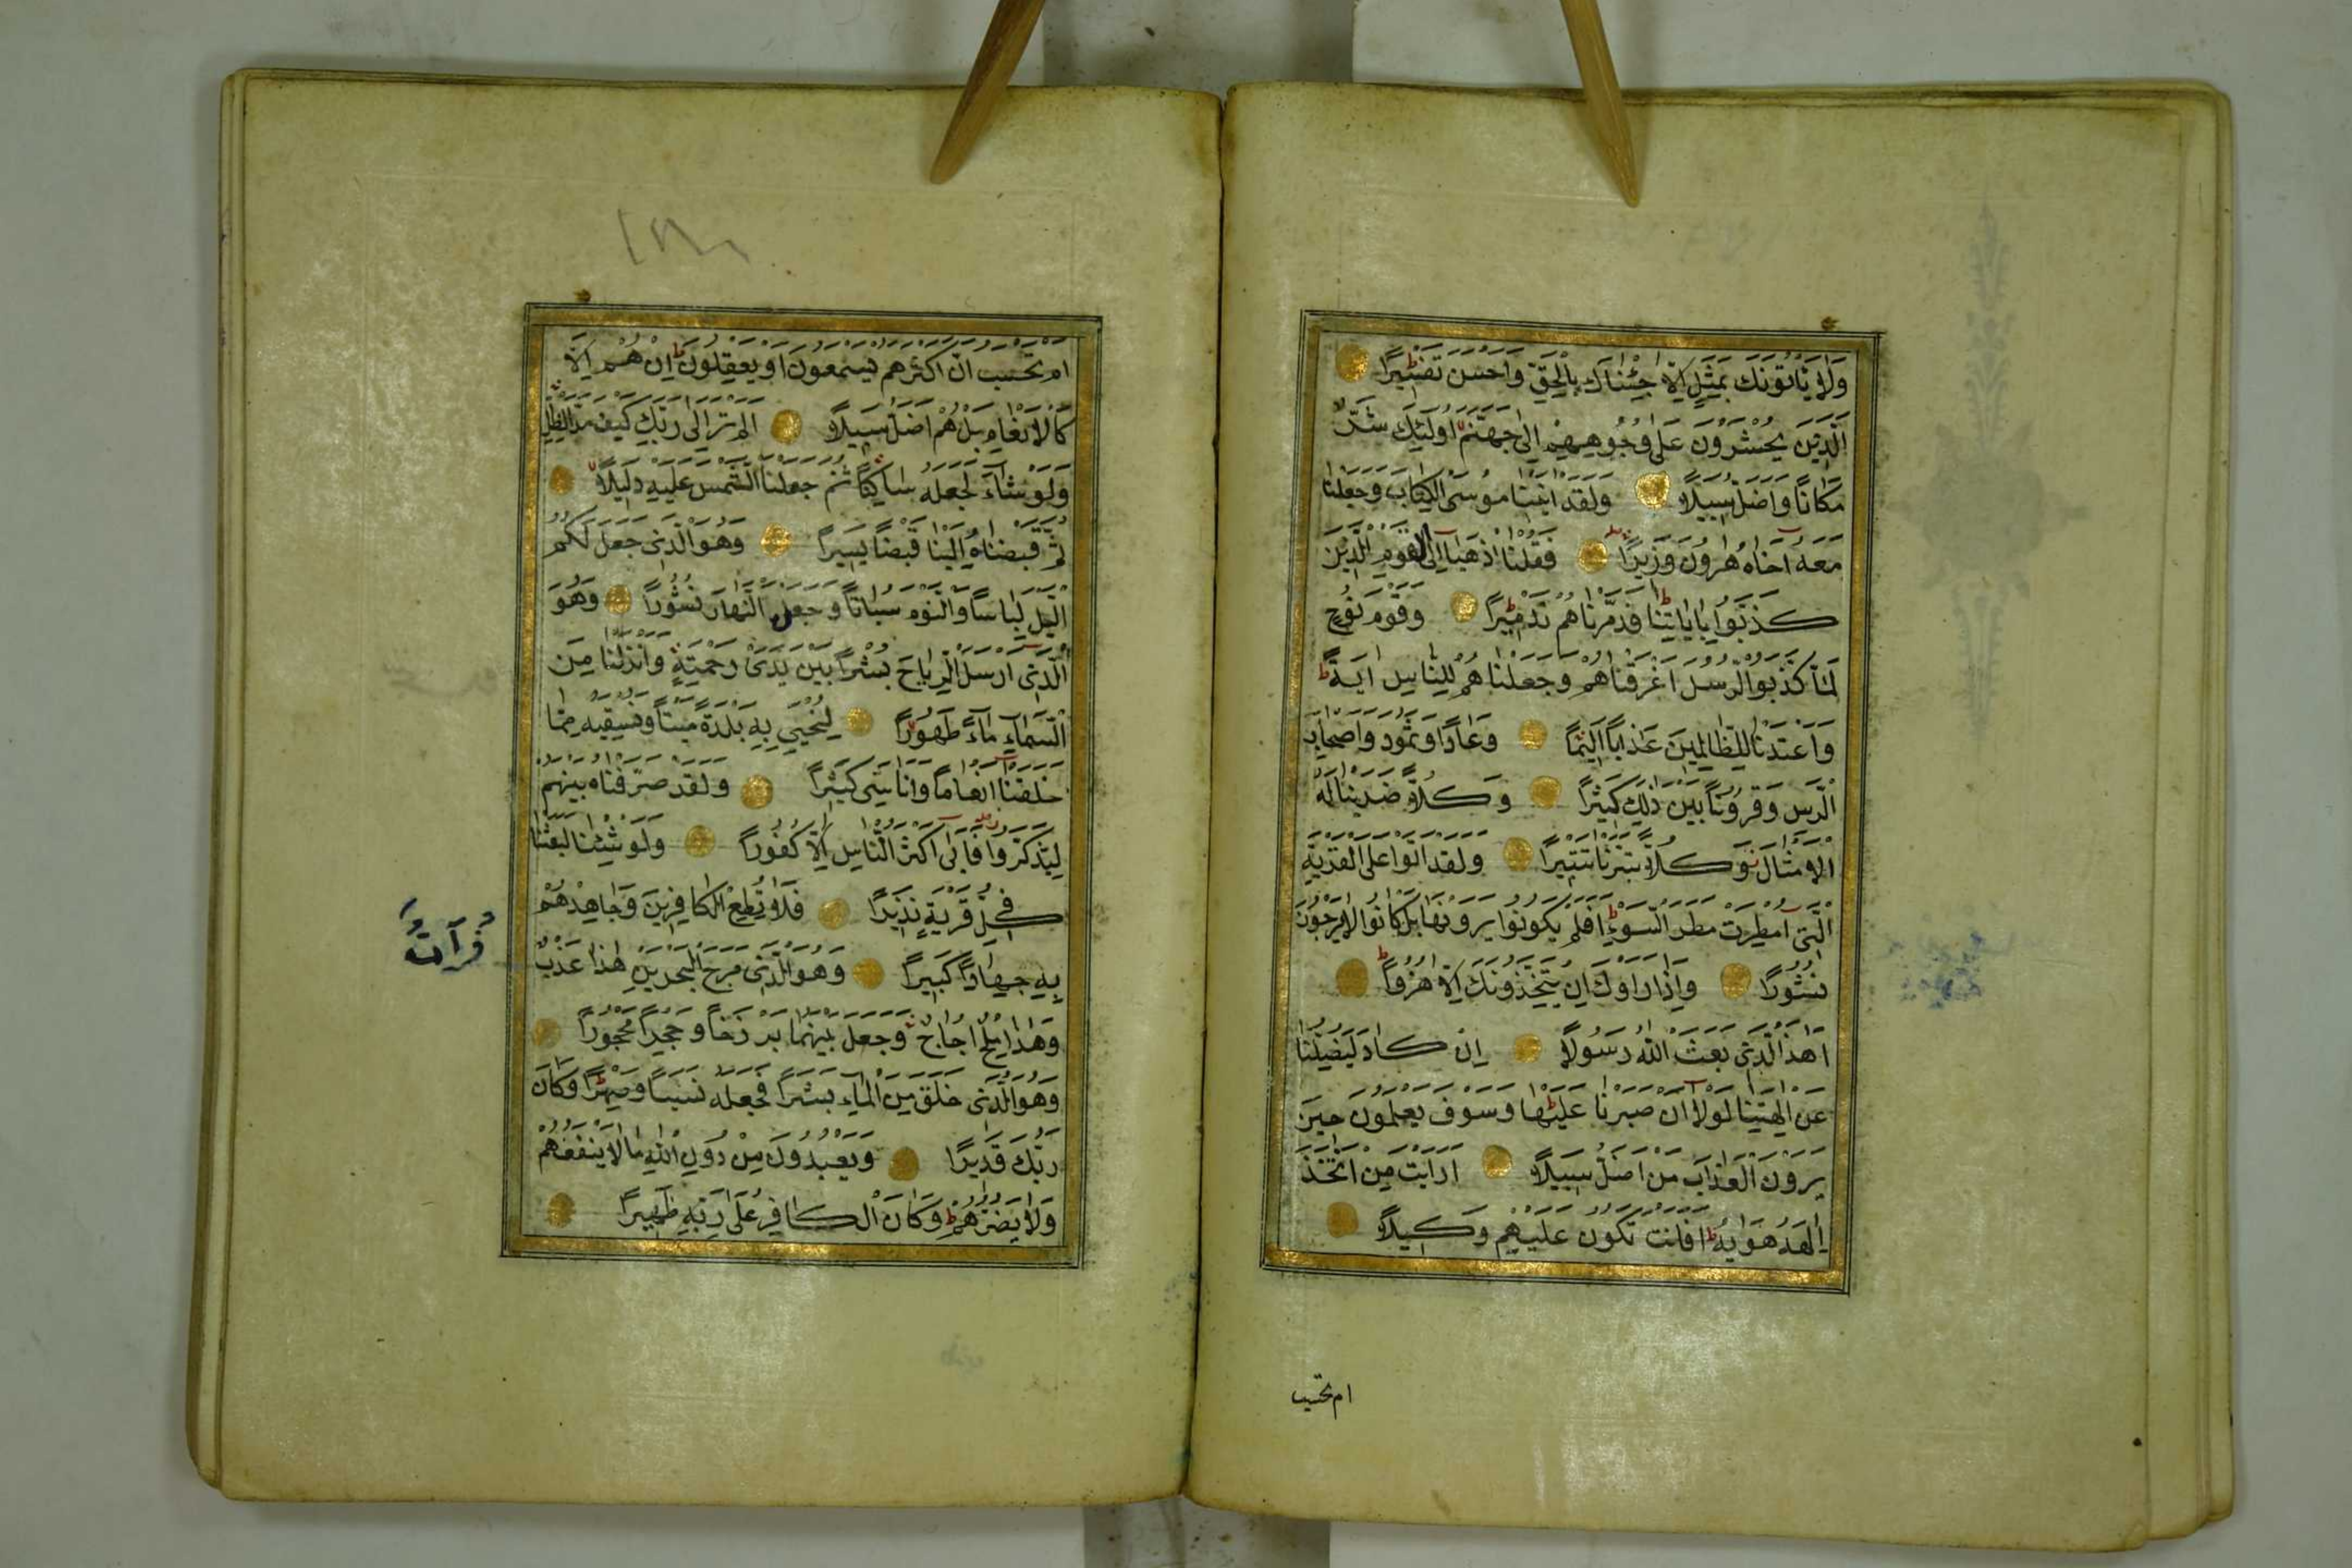 وَلَا يَأْتُونَكَ بِمَثَلٍ اِلَّا جِئْنَاكَ بِالْحَقِّ وَاَحْسَنَ تَفْسٖيرًا
اَلَّذٖينَ يُحْشَرُونَ عَلٰى وُجُوهِهِمْ اِلٰى جَهَنَّمَ اُولٰئِكَ شَرٌّ
مَكَانًا وَاَضَلُّ سَبٖيلًا وَلَقَدْ اٰتَيْنَا مُوسَى الْكِتَابَ وَجَعَلْنَا
مَعَهُ اَخَاهُ هٰرُونَ وَزٖيرًا فَقُلْنَا اذْهَبَا اِلَى الْقَوْمِ الَّذٖينَ
كَذَّبُوا بِاٰيَاتِنَا فَدَمَّرْنَاهُمْ تَدْمٖيرًا وَقَوْمَ نُوحٍ
لَمَّا كَذَّبُوا الرُّسُلَ اَغْرَقْنَاهُمْ وَجَعَلْنَاهُمْ لِلنَّاسِ اٰيَةً
وَاَعْتَدْنَا لِلظَّالِمٖينَ عَذَابًا اَلٖيمًا وَعَادًا وَثَمُودَ وَاَصْحَابَ
الرَّسِّ وَقُرُونًا بَيْنَ ذٰلِكَ كَثٖيرًا وَكُلًّا ضَرَبْنَا لَهُ
الْاَمْثَالَ وَكُلًّا تَبَّرْنَا تَتْبٖيرًا وَلَقَدْ اَتَوْا عَلَى الْقَرْيَةِ
الَّتٖى اُمْطِرَتْ مَطَرَ السَّوْءِ اَفَلَمْ يَكُونُوا يَرَوْنَهَا بَلْ كَانُوا لَا يَرْجُونَ
نُشُورًا وَاِذَا رَاَوْكَ اِنْ يَتَّخِذُونَكَ اِلَّا هُزُوًا
اَهٰذَا الَّذٖى بَعَثَ اللّٰهُ رَسُولًا اِنْ كَادَ لَيُضِلُّنَا
عَنْ اٰلِهَتِنَا لَوْلَا اَنْ صَبَرْنَا عَلَيْهَا وَسَوْفَ يَعْلَمُونَ حٖينَ
يَرَوْنَ الْعَذَابَ مَنْ اَضَلُّ سَبٖيلًا اَرَاَيْتَ مَنِ اتَّخَذَ
اِلٰهَهُ هَوٰيهُ اَفَاَنْتَ تَكُونُ عَلَيْهِمْ وَكٖيلًا
ام تحسب
اَمْ تَحْسَبُ اَنَّ اَكْثَرَهُمْ يَسْمَعُونَ اَوْ يَعْقِلُونَ اِنْ هُمْ اِلَّا
كَالْاَنْعَامِ بَلْ هُمْ اَضَلُّ سَبٖيلًا اَلَمْ تَرَ اِلٰى رَبِّكَ كَيْفَ مَدَّ الظِّلَّ
وَلَوْ شَاءَ لَجَعَلَهُ سَاكِنًا ثُمَّ جَعَلْنَا الشَّمْسَ عَلَيْهِ دَلٖيلًا
ثُمَّ قَبَضْنَاهُ اِلَيْنَا قَبْضًا يَسٖيرًا وَهُوَ الَّذٖى جَعَلَ لَكُمُ
الَّيْلَ لِبَاسًا وَالنَّوْمَ سُبَاتًا وَجَعَلَ النَّهَارَ نُشُورًا وَهُوَ
الَّذٖى اَرْسَلَ الرِّيَاحَ بُشْرًا بَيْنَ يَدَىْ رَحْمَتِهٖ وَاَنْزَلْنَا مِنَ
السَّمَاءِ مَاءً طَهُورًا لِنُحْيِىَ بِهٖ بَلْدَةً مَيْتًا وَنُسْقِيَهُ مِمَّا
خَلَقْنَا اَنْعَامًا وَاَنَاسِىَّ كَثٖيرًا وَلَقَدْ صَرَّفْنَاهُ بَيْنَهُمْ
لِيَذَّكَّرُوا فَاَبٰى اَكْثَرُ النَّاسِ اِلَّا كُفُورًا وَلَوْ شِئْنَا لَبَعَثْنَا
فٖى كُلِّ قَرْيَةٍ نَذٖيرًا فَلَا تُطِعِ الْكَافِرٖينَ وَجَاهِدْهُمْ
بِهٖ جِهَادًا كَبٖيرًا وَهُوَ الَّذٖى مَرَجَ الْبَحْرَيْنِ هٰذَا عَذْبٌ
وَهٰذَا مِلْحٌ اُجَاجٌ وَجَعَلَ بَيْنَهُمَا بَرْزَخًا وَحِجْرًا مَحْجُورًا
وَهُوَ الَّذٖى خَلَقَ مِنَ الْمَاءِ بَشَرًا فَجَعَلَهُ نَسَبًا وَصِهْرًا وَكَانَ
رَبُّكَ قَدٖيرًا وَيَعْبُدُونَ مِنْ دُونِ اللّٰهِ مَا لَا يَنْفَعُهُمْ
وَلَا يَضُرُّهُمْ وَكَانَ الْكَافِرُ عَلٰى رَبِّهٖ ظَهٖيرًا